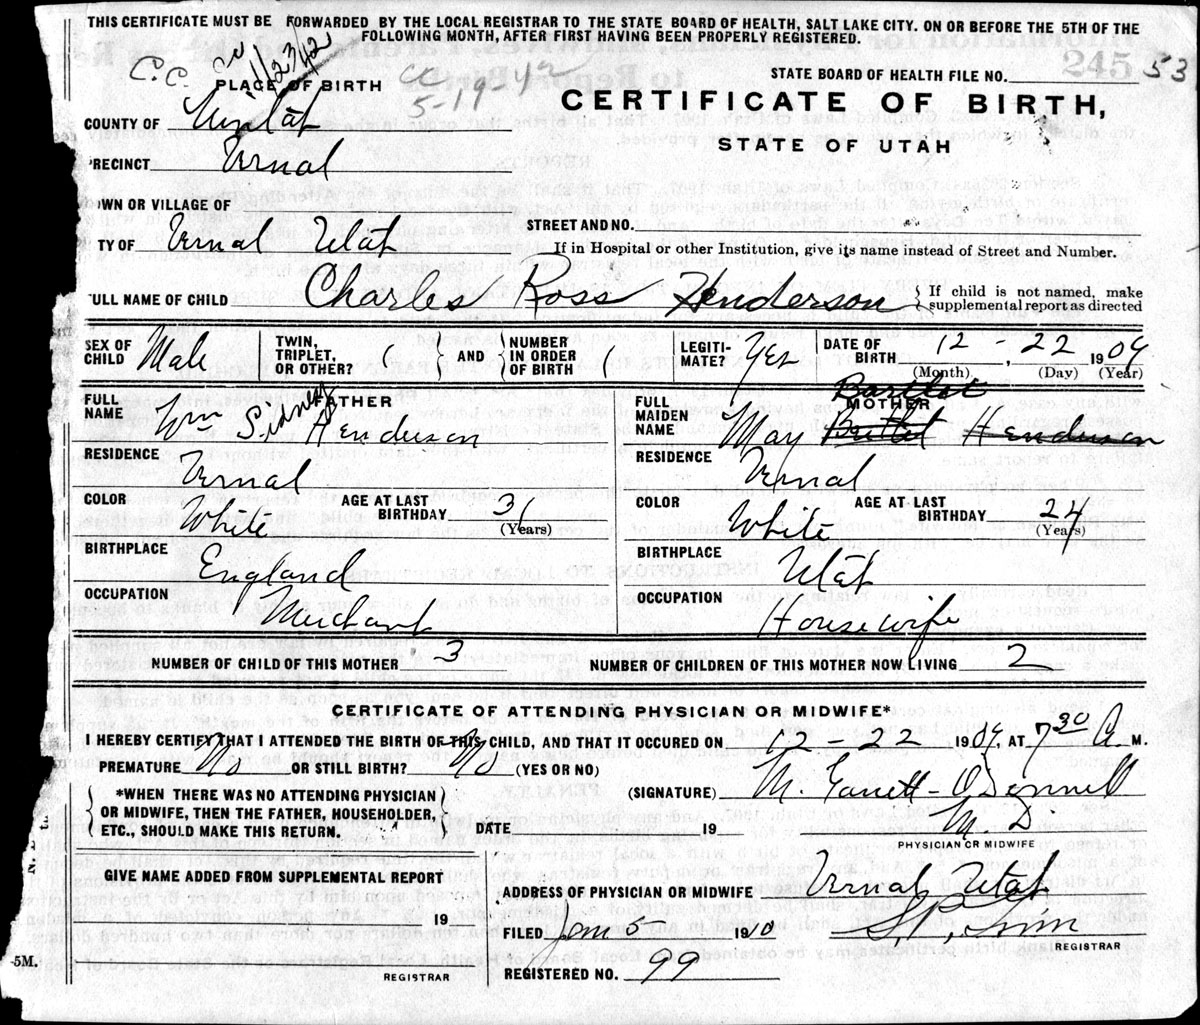 THIS CERTIFICATE MUST BE FORWARDED BY THE LOCAL REGISTRAR TO THE STATE BOARD OF HEALTH, SALT LAKE CITY. ON OR BEFORE THE 5TH OF THE
FOLLOWING MONTH, AFTER FIRST HAVING BEEN PROPERLY REGISTERED.
C.C. 11/23/42
CC 5-19-42
STATE BOARD OF HEALTH FILE NO. 245 53
PLACE OF BIRTH
CERTIFICATE OF BIRTH,
COUNTY OF Uintah
STATE OF UTAH
PRECINCT Vernal
OWN OR VILLAGE OF
STREET AND NO.
TY OF Vernal Utah
If in Hospital or other Institution, give its name instead of Street and Number.
ULL NAME OF CHILD Charles Ross Henderson { If child is not named, make
supplemental report as directed
SEX OF CHILD Male TWIN, TRIPLET, OR OTHER? ( } AND { NUMBER IN ORDER OF BIRTH LEGITI-MATE? Yes DATE OF BIRTH 12 - 22 1909
(Month) (Day) (Year)
FATHER
FULL NAME Wm Sidney Henderson
MOTHER
Bartlet
FULL MAIDEN NAME May Bartlet Henderson
RESIDENCE Vernal
RESIDENCE Vernal
COLOR White AGE AT LAST BIRTHDAY 31 (Years)
COLOR White AGE AT LAST BIRTHDAY 24 (Years)
BIRTHPLACE England
BIRTHPLACE Utah
OCCUPATION Merchant
OCCUPATION Housewife
NUMBER OF CHILD OF THIS MOTHER 3 NUMBER OF CHILDREN OF THIS MOTHER NOW LIVING 2
CERTIFICATE OF ATTENDING PHYSICIAN OR MIDWIFE*
I HEREBY CERTIFY THAT I ATTENDED THE BIRTH OF THIS CHILD, AND THAT IT OCCURED ON 12 - 22 1909, AT 7 30 A. M.
PREMATURE No OR STILL BIRTH? No (YES OR NO)
(SIGNATURE) M. Garrett-O'Donnell
*WHEN THERE WAS NO ATTENDING PHYSICIAN
OR MIDWIFE, THEN THE FATHER, HOUSEHOLDER,
ETC., SHOULD MAKE THIS RETURN.
DATE 19 M. D.
PHYSICIAN OR MIDWIFE
GIVE NAME ADDED FROM SUPPLEMENTAL REPORT
ADDRESS OF PHYSICIAN OR MIDWIFE Vernal, Utah
19
FILED Jan 5 1910
REGISTRAR
REGISTRAR
REGISTERED NO. 99
5M.